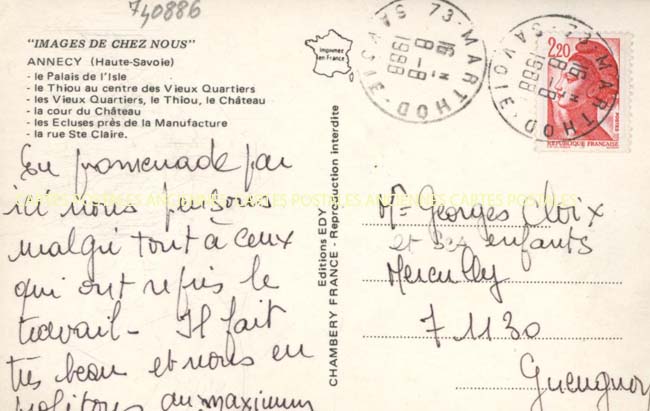 740886
"IMAGES DE CHEZ NOUS"
ANNECY (Haute-Savoie)
- le Palais de l'Isle
- le Thiou au centre des Vieux Quartiers
- les Vieux Quartiers, le Thiou, le Château
- la cour du Château
- les Ecluses près de la Manufacture
- la rue Ste Claire.
Imprimé en France
73 - MARTHOD
SAVOIE
16 H
8-8
1988
73 - MARTHOD
SAVOIE
16 H
8-8
1988
2,20
REPUBLIQUE FRANÇAISE
POSTES
En promenade par
ici nous pensons
malgré tout à ceux
qui ont repris le
travail - Il fait
très beau et nous en
profitons au maximum
Editions EDY
CHAMBERY FRANCE - Reproduction interdite
Mme Georges Cloix
et ses enfants
71130
Gueugnon
CARTES POSTALES ANCIENNES CARTES POSTALES ANCIENNES CARTES POSTALES